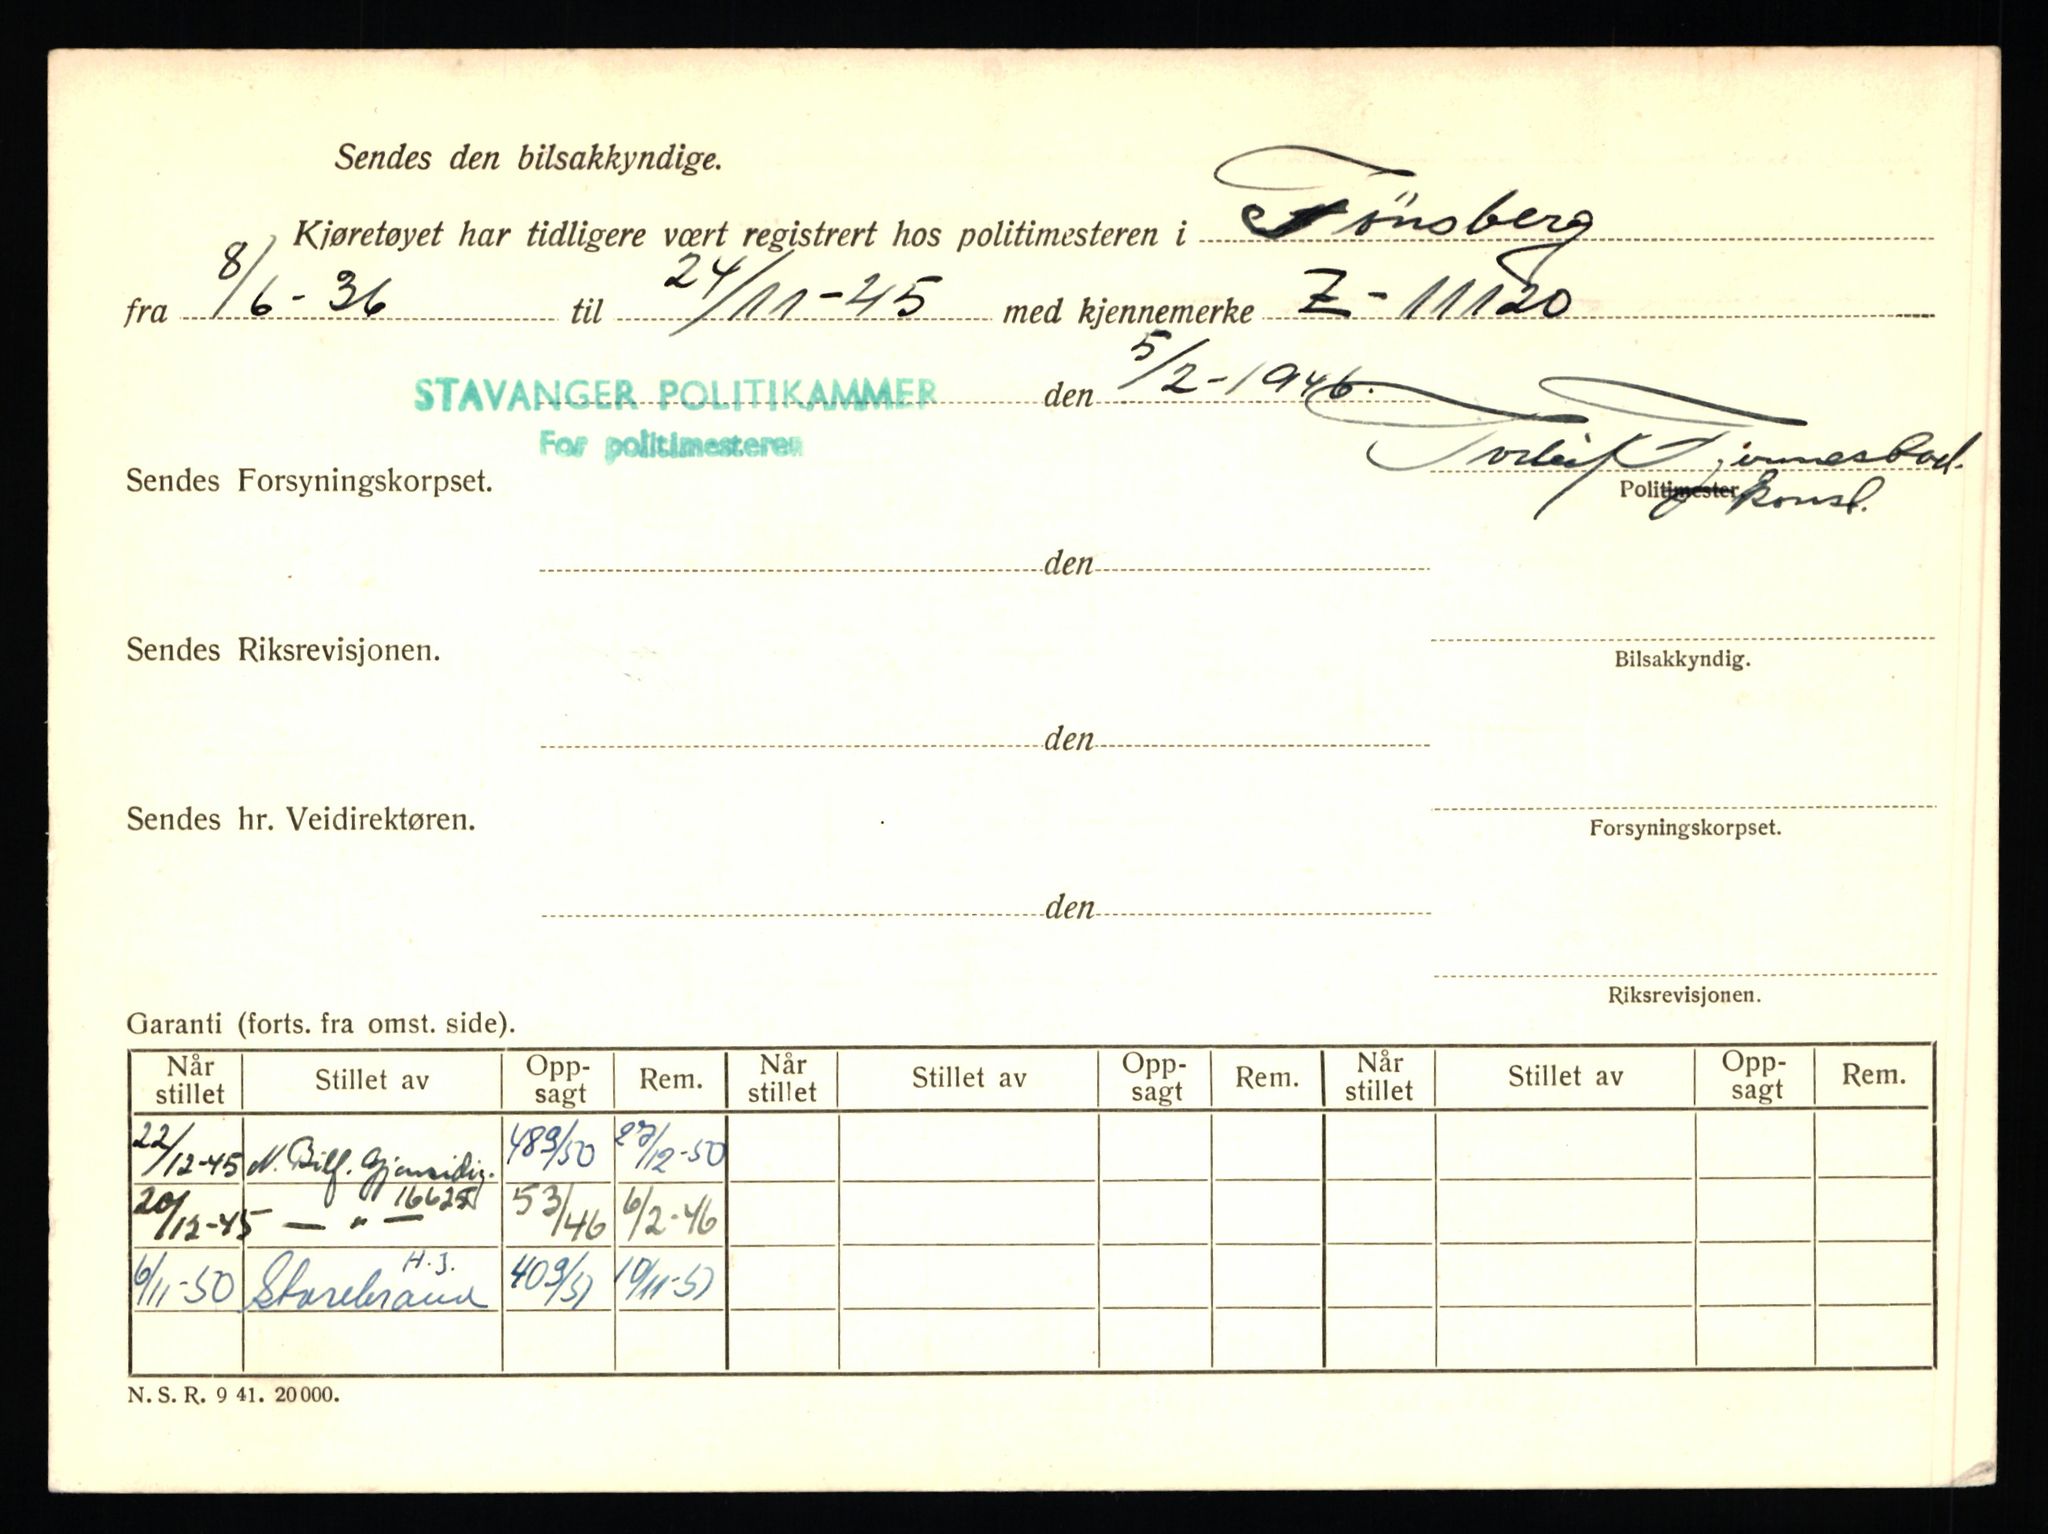 Sendes den bilsakkyndige.
Kjøretøyet har tidligere vært registrert hos politimesteren i Tönsberg
fra 8/6-36 til 24/11-45 med kjennemerke Z-11120
STAVANGER POLITIKAMMER den 5/2-1946.
For politimesteren
Sendes Forsyningskorpset.
Politimester
den
Sendes Riksrevisjonen.
Bilsakkyndig.
den
Sendes hr. Veidirektøren.
Forsyningskorpset.
den
Riksrevisjonen.
Garanti (forts. fra omst. side).
Når stillet Stillet av Opp-sagt Rem. Når stillet Stillet av Opp-sagt Rem. Når stillet Stillet av Opp-sagt Rem.
22/12-45 N. Bilf. Gjensidig. 489/50 27/12-50
20/12-45 — " — 53/46 6/2-46
6/11-50 Storebrand H.J. 409/51 10/11-51
N. S. R. 9 41. 20 000.